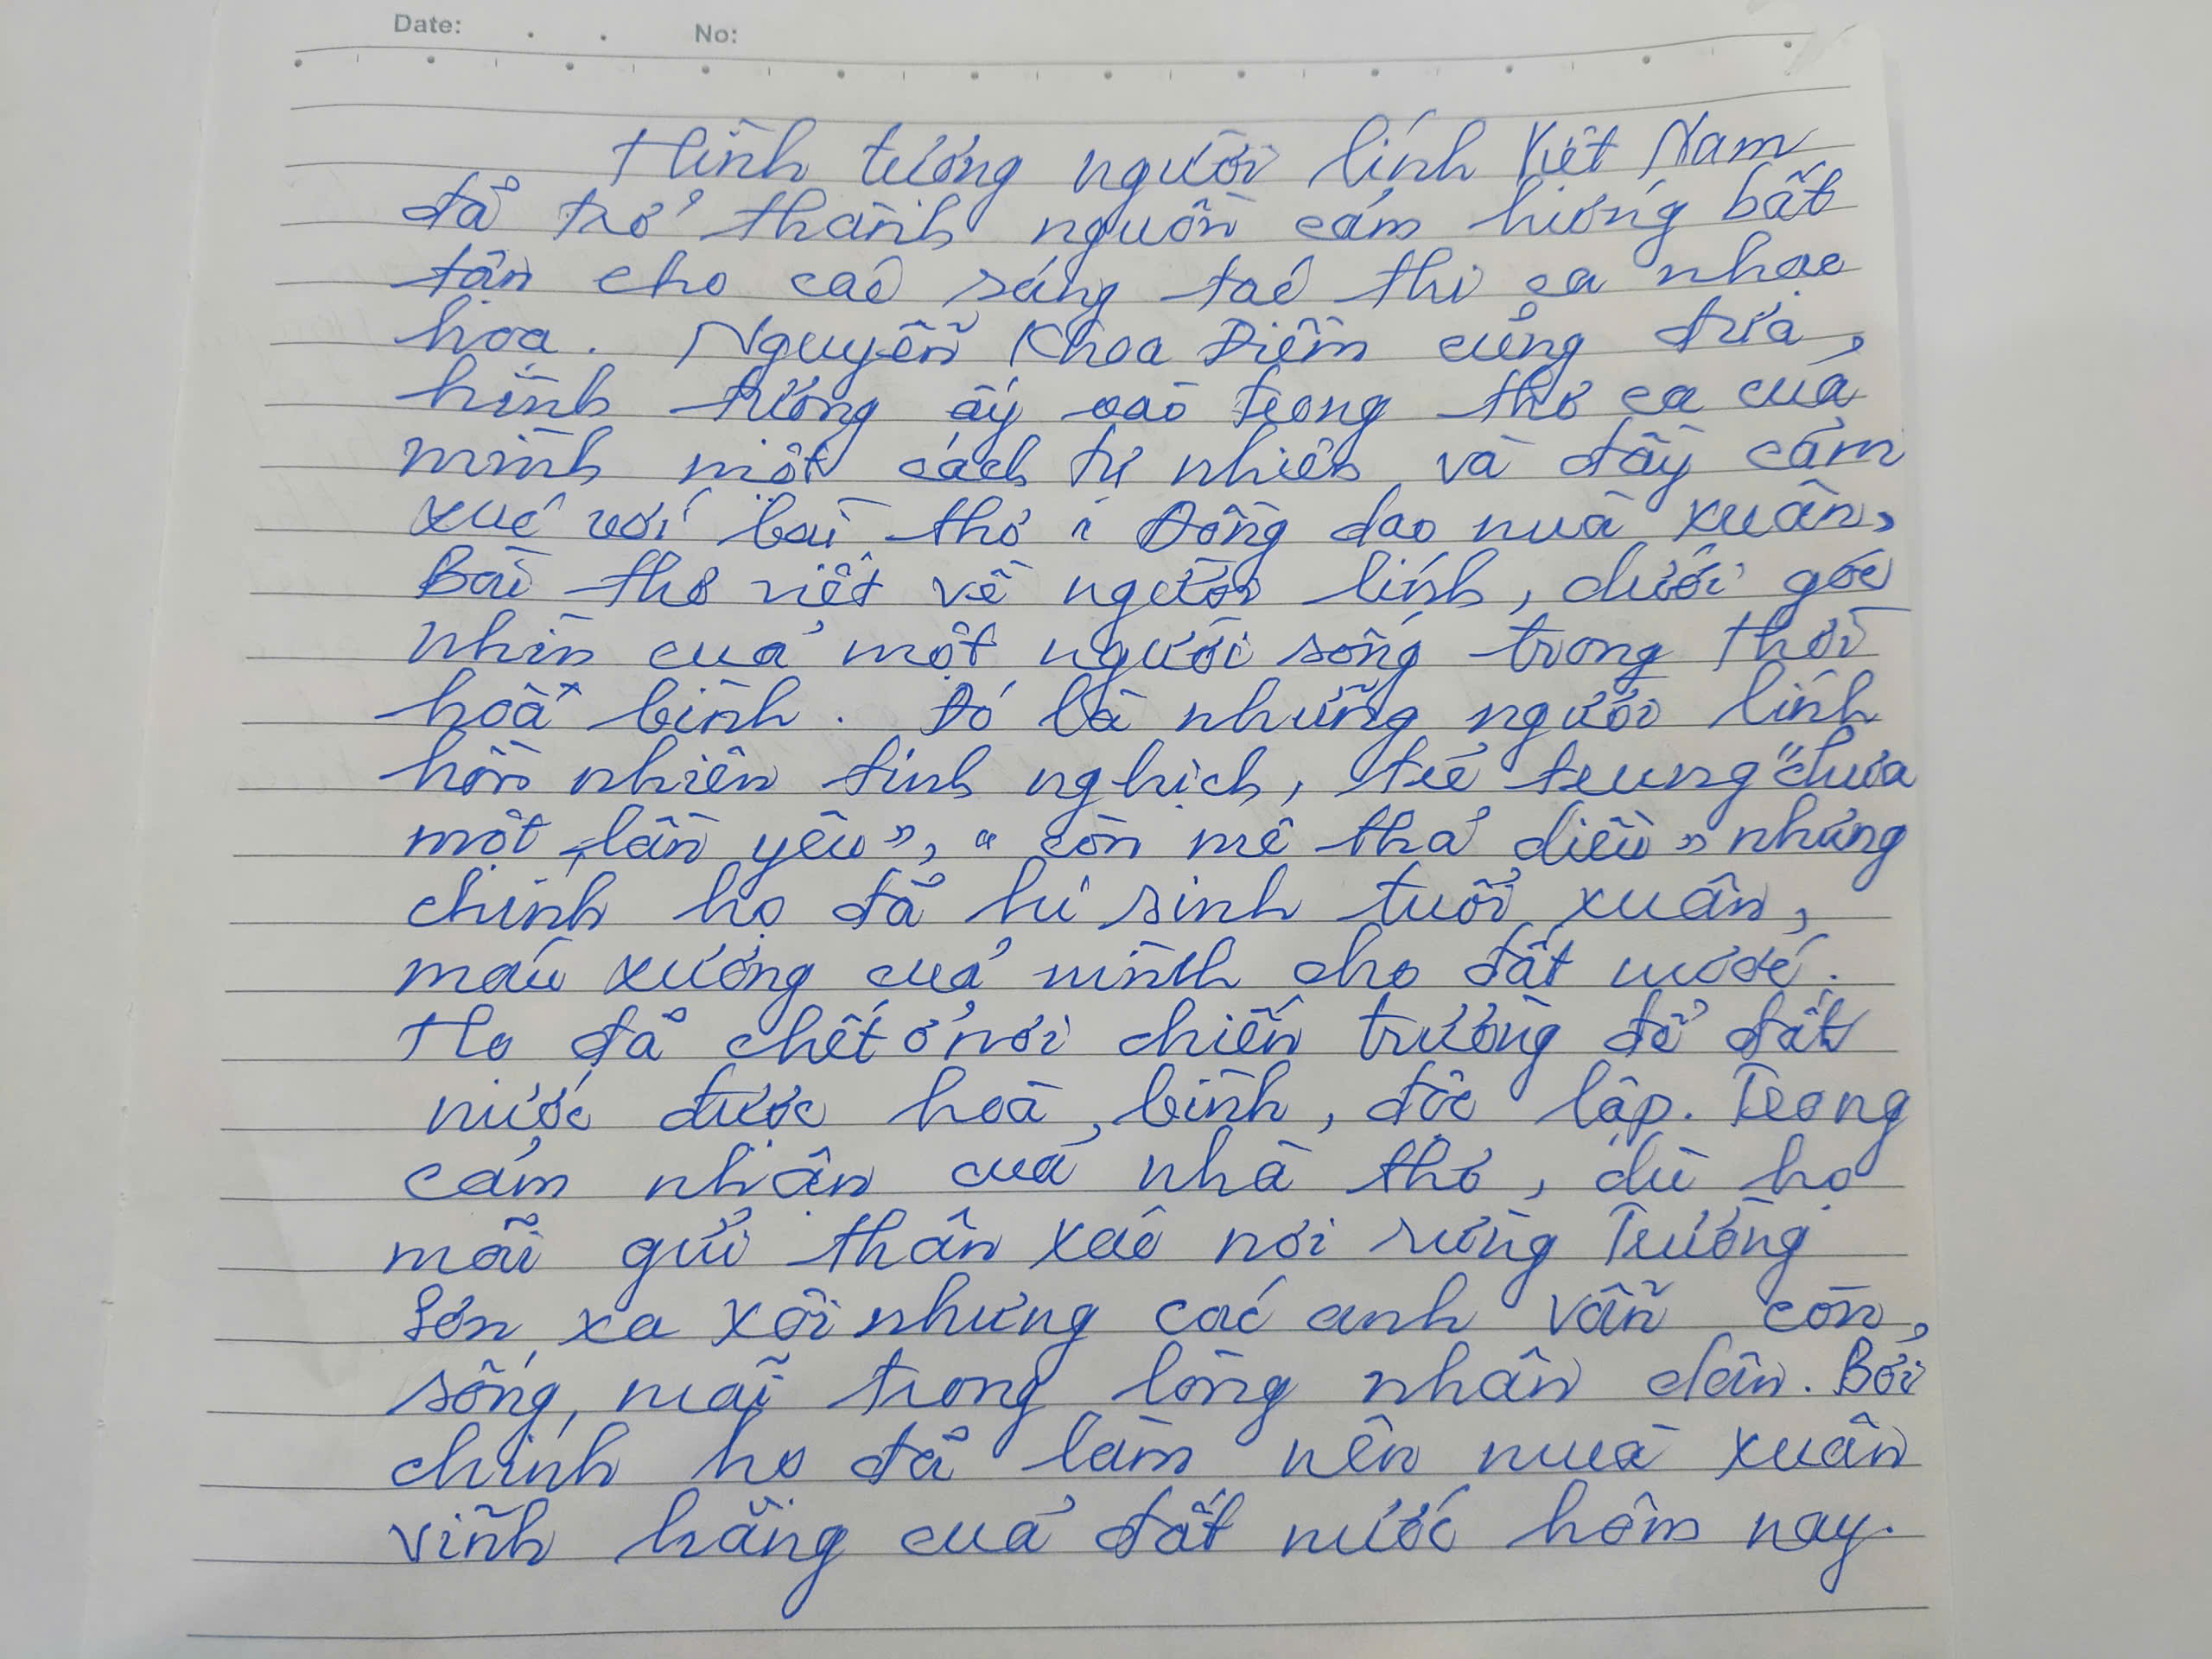 Date: . . No:
Hình tượng người lính Việt Nam
đã trở thành nguồn cảm hứng bất
tận cho các sáng tác thi ca nhạc
họa. Nguyễn Khoa Điềm cũng đưa
hình tượng ấy vào trong thơ ca của
mình một cách tự nhiên và đầy cảm
xúc với bài thơ " Đồng dao mùa xuân,
Bài thơ viết về người lính, dưới góc
nhìn của một người sống trong thời
hoà bình. Đó là những người lính
hồn nhiên tinh nghịch, trẻ trung "chưa
một lần yêu", " còn mê thả diều" nhưng
chính họ đã hi sinh tuổi xuân,
máu xương của mình cho đất nước.
Họ đã chết ở nơi chiến trường để đất
nước được hoà bình, độc lập. Trong
cảm nhận của nhà thơ, dù họ
mãi gửi thân xác nơi rừng Trường
Sơn xa xôi nhưng các anh vẫn còn
sống mãi trong lòng nhân dân. Bởi
chính họ đã làm nên mùa xuân
vĩnh hằng của đất nước hôm nay.